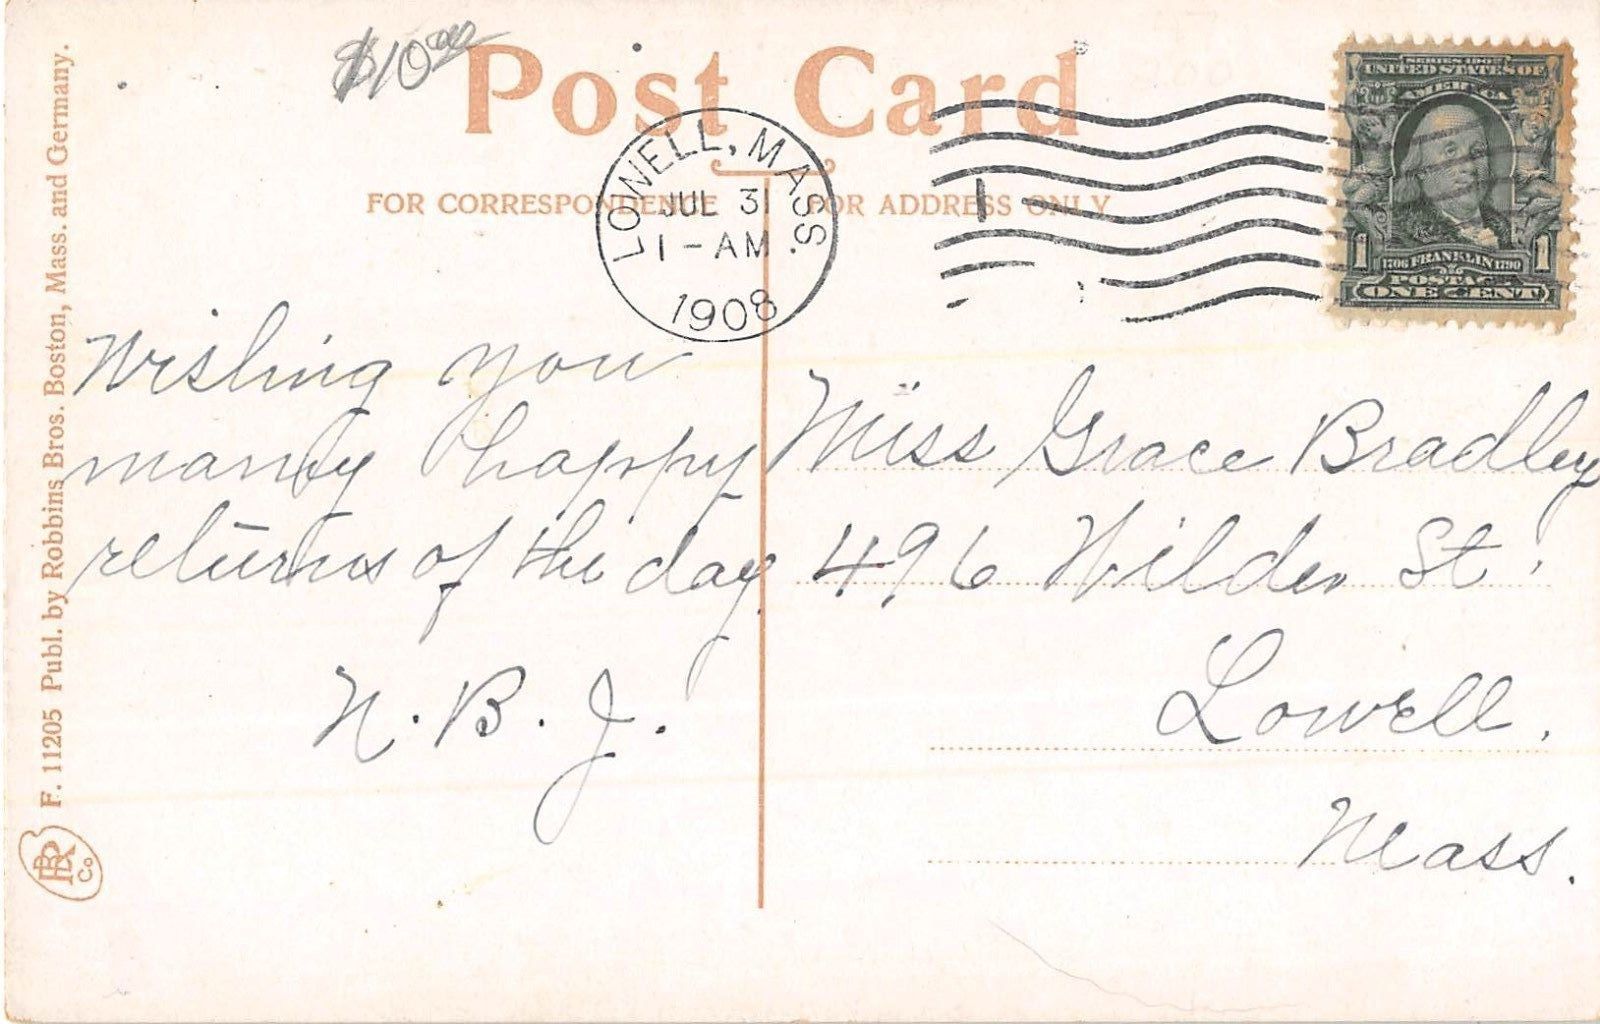 $10.00
Post Card
FOR CORRESPONDENCE
FOR ADDRESS ONLY
LOWELL, MASS.
JUL 31
1-AM
1908
SERIES 1902
UNITED STATES OF
AMERICA
1706 FRANKLIN 1790
POSTAGE
1 1
ONE CENT
Wishing you
many happy
returns of the day.
N. B. J.
Miss Grace Bradley
496 Wilder St.
Lowell.
Mass.
F. 11205 Publ. by Robbins Bros. Boston, Mass. and Germany.
Co